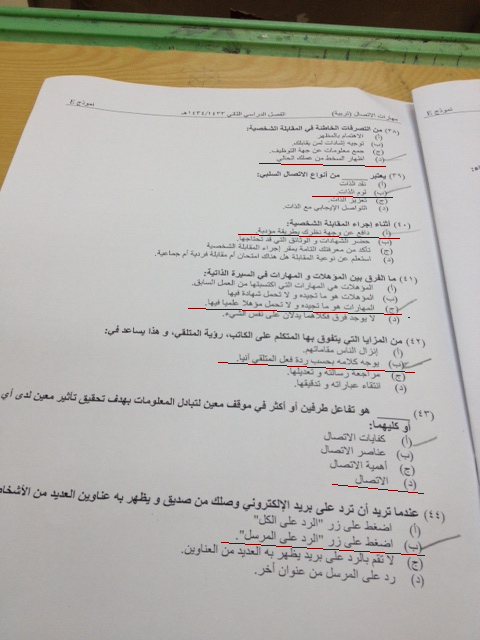 مهارات الاتصال (تربية) الفصل الدراسي الثاني ١٤٣٤/١٤٣٣هـ نموذج E
(٣٨) من التصرفات الخاطئة في المقابلة الشخصية:
أ) الاهتمام بالمظهر
ب) توجيه إشادات لمن يقابلك
ج) جمع معلومات عن جهة التوظيف.
د) اظهار السخط من عملك الحالي
(٣٩) يعتبر ______ من أنواع الاتصال السلبي:
أ) نقد الذات
ب) لوم الذات.
ج) تعزيز الذات.
د) التواصل الإيجابي مع الذات.
(٤٠) أثناء إجراء المقابلة الشخصية:
أ) دافع عن وجهة نظرك بطريقة مؤدبة.
ب) حضر الشهادات و الوثائق التي قد تحتاجها.
ج) تأكد من معرفتك التامة بمقر إجراء المقابلة الشخصية
د) استعلم عن نوعية المقابلة هل هناك امتحان أم مقابلة فردية أم جماعية.
(٤١) ما الفرق بين المؤهلات و المهارات في السيرة الذاتية:
أ) المؤهلات هي المهارات التي اكتسبتها من العمل السابق.
ب) المؤهلات هو ما تجيده و لا تحمل شهادة فيها
ج) المهارات هو ما تجيده و لا تحمل مؤهلا علميا فيها.
د) لا يوجد فرق فكلاهما يدلان على نفس الشيء.
(٤٢) من المزايا التي يتفوق بها المتكلم على الكاتب، رؤية المتلقي، و هذا يساعد في:
أ) إنزال الناس مقاماتهم.
ب) يوجه كلامه بحسب ردة فعل المتلقي آنيا.
ج) مراجعة رسالته و تعديلها.
د) انتقاء عباراته و تدقيقها.
(٤٣) ______ هو تفاعل طرفين أو أكثر في موقف معين لتبادل المعلومات بهدف تحقيق تأثير معين لدى أي
أو كليهما:
أ) كفايات الاتصال
ب) عناصر الاتصال
ج) أهمية الاتصال
د) الاتصال
(٤٤) عندما تريد أن ترد على بريد الإلكتروني وصلك من صديق و يظهر به عناوين العديد من الأشخاص
أ) اضغط على زر "الرد على الكل"
ب) اضغط على زر "الرد على المرسل".
ج) لا تقم بالرد على بريد يظهر به العديد من العناوين.
د) رد على المرسل من عنوان آخر.
نموذج E